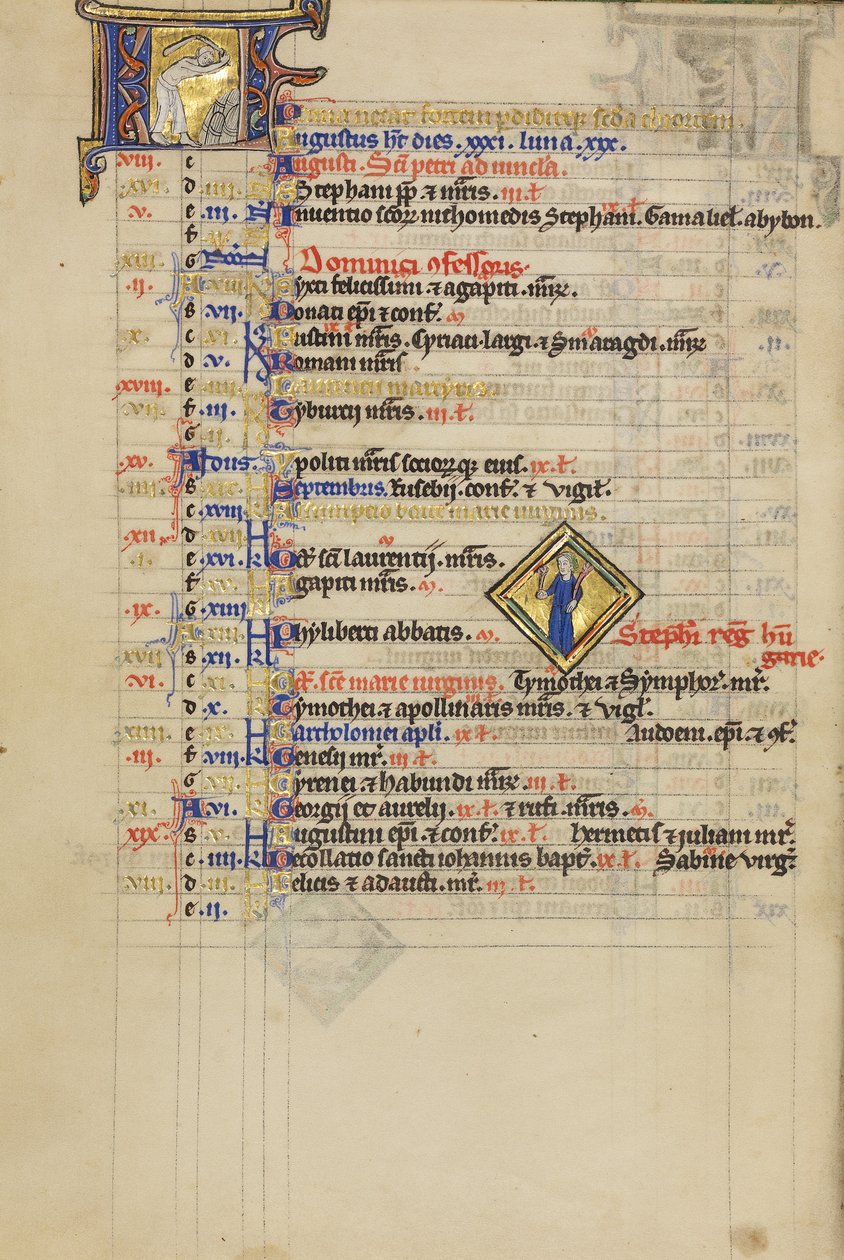 Prima necat fortem p̄ditq; scd̄a cohortem.
Augustus h̄t dies .xxxi. luna .xxx.
.viii. c Augusti. Sc̄i petri ad uincla.
.xvi. d .iiii. N Stephani pp̄ & m̄ris. iii. ł.
.v. e .iii. N Inuentio scoꝝ nichomedis Stephani. Gamaliel. abybon. ix. ł.
f .ii. N
.xiii. G Non̄ Dominici ꝯfessoris.
.ii. A .viii. Syxti felicissimi & agapiti. m̄rꝝ.
b .vii. Donati ep̄i & conf̄. m̄
.x. c .vi. Iustini m̄ris. Cyriaci. largi. & Smaragdi. m̄rꝝ ix. ł. m̄
d .v. Romani m̄ris.
.xviii. e .iiii. Laurentii martyris.
.vii. f .iii. Tyburcii m̄ris. iii. ł.
G .ii.
.xv. A Idus. Ypoliti m̄ris socioꝝq; eius. ix. ł.
.iiii. b .xix. k Septembris. Eusebij. conf̄. & vigił.
c .xviii. k Assumpcio beate marie uirginis.
.xii. d .xvii. k
.i. e .xvi. k Oct̄. sc̄i laurentij. m̄ris. m̄
f .xv. k Agapiti m̄ris. m̄.
.ix. G .xiiii. k
A .xiii. k Phyliberti abbatis. m̄. Steph̄i reḡ hū
garie.
.xvii. b .xii. k
.vi. c .xi. k Oct̄. sc̄e marie uirginis. Tymothei & Symphor̄. mr̄.
d .x. k Tymothei. & apollinaris m̄ris. & vigł.
.xiiii. e .ix. k Bartholomei apłi. ix. ł. Audoeni. ep̄i. & ꝯf̄.
.iii. f .viii. k Genesii mr̄. iii ł.
G .vii. k Cyrenei. & habundi m̄rꝝ. iii. ł.
.xi. A .vi. k Georgij et aurelij. ix. ł. & rufi. m̄ris. m̄.
.xix. b .v. k Augustini ep̄i. & conf̄. ix. ł. hermetis & iuliani mr̄.
c .iiii. k Decollatio sancti iohannis bapt̄. ix. ł. Sabine virḡ.
.viii. d .iii. k Felicis & adaucti. mr̄. iii. ł.
e .ii. k